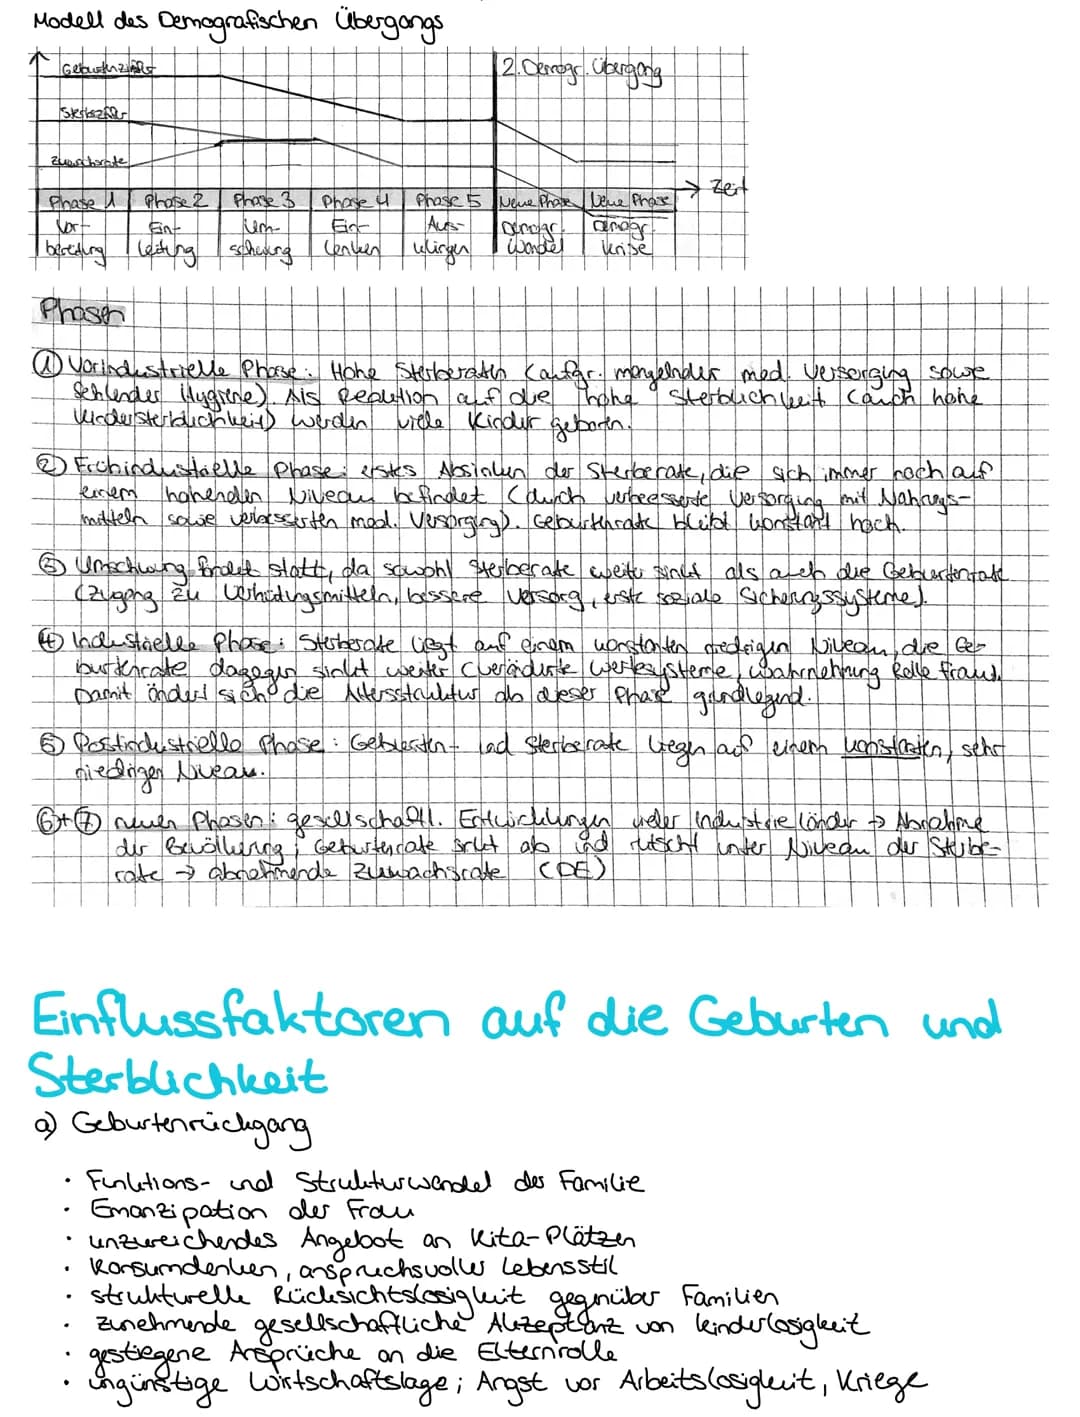 Modell des Demografischen Übergangs
Geburtenziffer
2. Demogr. Übergang
Sterbeziffer
Zuwachsrate
→ Zeit
Phase 1 Phase 2 Phase 3 Phase 4 Phase 5 Neue Phase Neue Phase
Vor- Ein- Um- Ein- Aus- demogr. demogr.
bereitung leitung schwung lenken klingen wandel krise
Phasen
① Vorindustrielle Phase: Hohe Sterberaten (aufgr. mangelnder med. Versorgung sowie
fehlender Hygiene). Als Reaktion auf die hohe Sterblichkeit (auch hohe
Kindersterblichkeit) werden viele Kinder geboren.
② Frühindustrielle Phase: erstes Absinken der Sterberate, die sich immer noch auf
einem hohenden Niveau befindet (durch verbesserte Versorgung mit Nahrungs-
mitteln sowie verbesserten med. Versorgung). Geburtenrate bleibt konstant hoch.
③ Umschwung findet statt, da sowohl Sterberate weiter sinkt als auch die Geburtenrate
(Zugang zu Verhütungsmitteln, bessere Versorg., erste soziale Sicherungssysteme).
④ Industrielle Phase: Sterberate liegt auf einem konstanten niedrigen Niveau, die Ge-
burtenrate dagegen sinkt weiter (veränderte Wertesysteme, Wahrnehmung Rolle Frau).
Damit ändert sich die Altersstruktur ab dieser Phase grundlegend.
⑤ Postindustrielle Phase: Geburten- und Sterberate liegen auf einem konstanten, sehr
niedrigen Niveau.
⑥+⑦ neuen Phasen: gesellschaftl. Entwicklungen vieler Industrieländer → Abnahme
der Bevölkerung; Geburtenrate sinkt ab und rutscht unter Niveau der Sterbe-
rate → abnehmende Zuwachsrate (DE)
Einflussfaktoren auf die Geburten und
Sterblichkeit
a) Geburtenrückgang
· Funktions- und Strukturwandel der Familie
· Emanzipation der Frau
· unzureichendes Angebot an Kita-Plätzen
· Konsumdenken, anspruchsvoller Lebensstil
· strukturelle Rücksichtslosigkeit gegenüber Familien
· zunehmende gesellschaftliche Akzeptanz von Kinderlosigkeit
· gestiegene Ansprüche an die Elternrolle
· ungünstige Wirtschaftslage; Angst vor Arbeitslosigkeit, Kriege